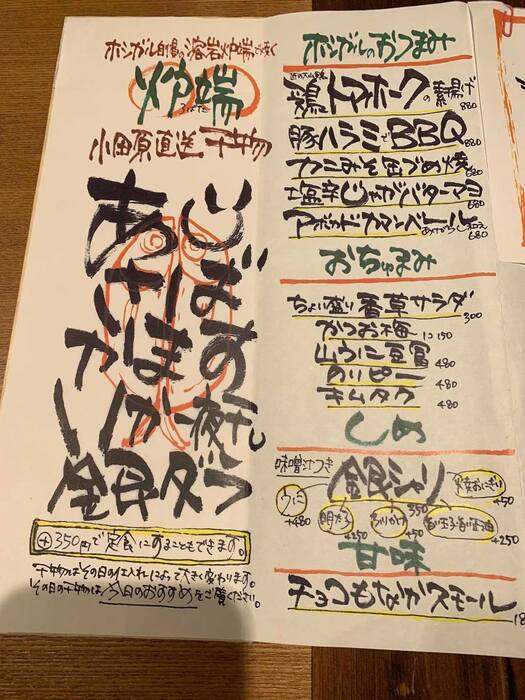 ホシガル自慢の溶岩炉端で焼く
炉端
ろばた
小田原直送 干物
あじ
さば
いぼ
ほ
か
一夜干し
全食ダゾ
⊕350円で定食にすることもできます。
干物はその日の仕入れによって大きく変わります。
その日の干物は、今日のおすすめをご覧ください。
ホシガルのおつまみ
鶏トマホークの素揚げ 880
豚ハラミでBBQ 880
カニみそ缶づめ焼 680
塩辛じゃがバターマヨ 680
アボカドカマンベール 680
おちゅまみ
ちょい盛り 香草サラダ 300
かつお梅 1コ150
山うに豆腐 480
のりピー 480
キムタク 480
しめ
味噌汁つき
銀シャリ 350
焼おにぎり +50
うに +480
明太子 +250
ふりかけ +50
旨玉子旨醤油 +250
甘味
チョコもなかスモール